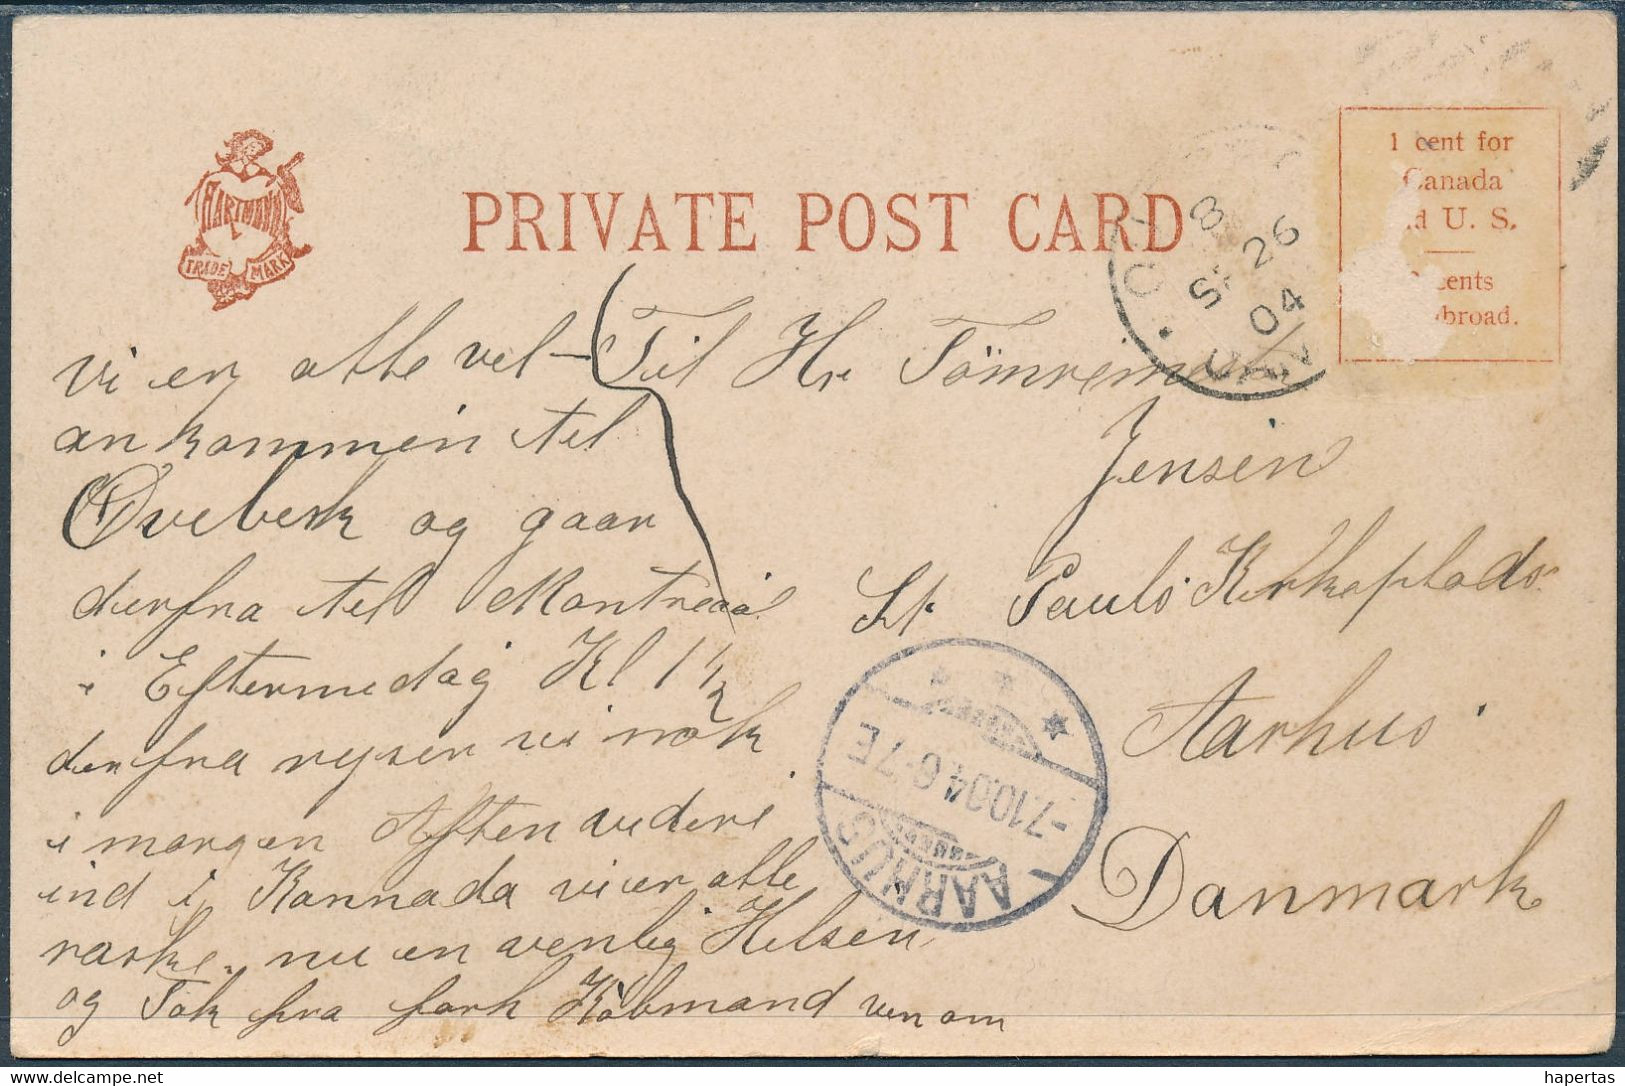 HARTMANN
TRADE MARK
PRIVATE POST CARD
1 cent for
Canada
U. S.
cents
broad.
8
SP 26
04
CANADA
vi er alle vel
ankommen til
Qvebeck og gaar
derfra til Montreal
i Eftermedag Kl 1½
derfra rejser vi nok
i morgen Aften videre
ind i Kannada vi er alle
raske. nu en venlig Helsen
og Tak fra Kobmand
Til Hr Tömrem
Jensen
St Pauls Kirkeplads
Aarhus
Danmark
AARHUS
-7.10.04.6-7E
hapertas